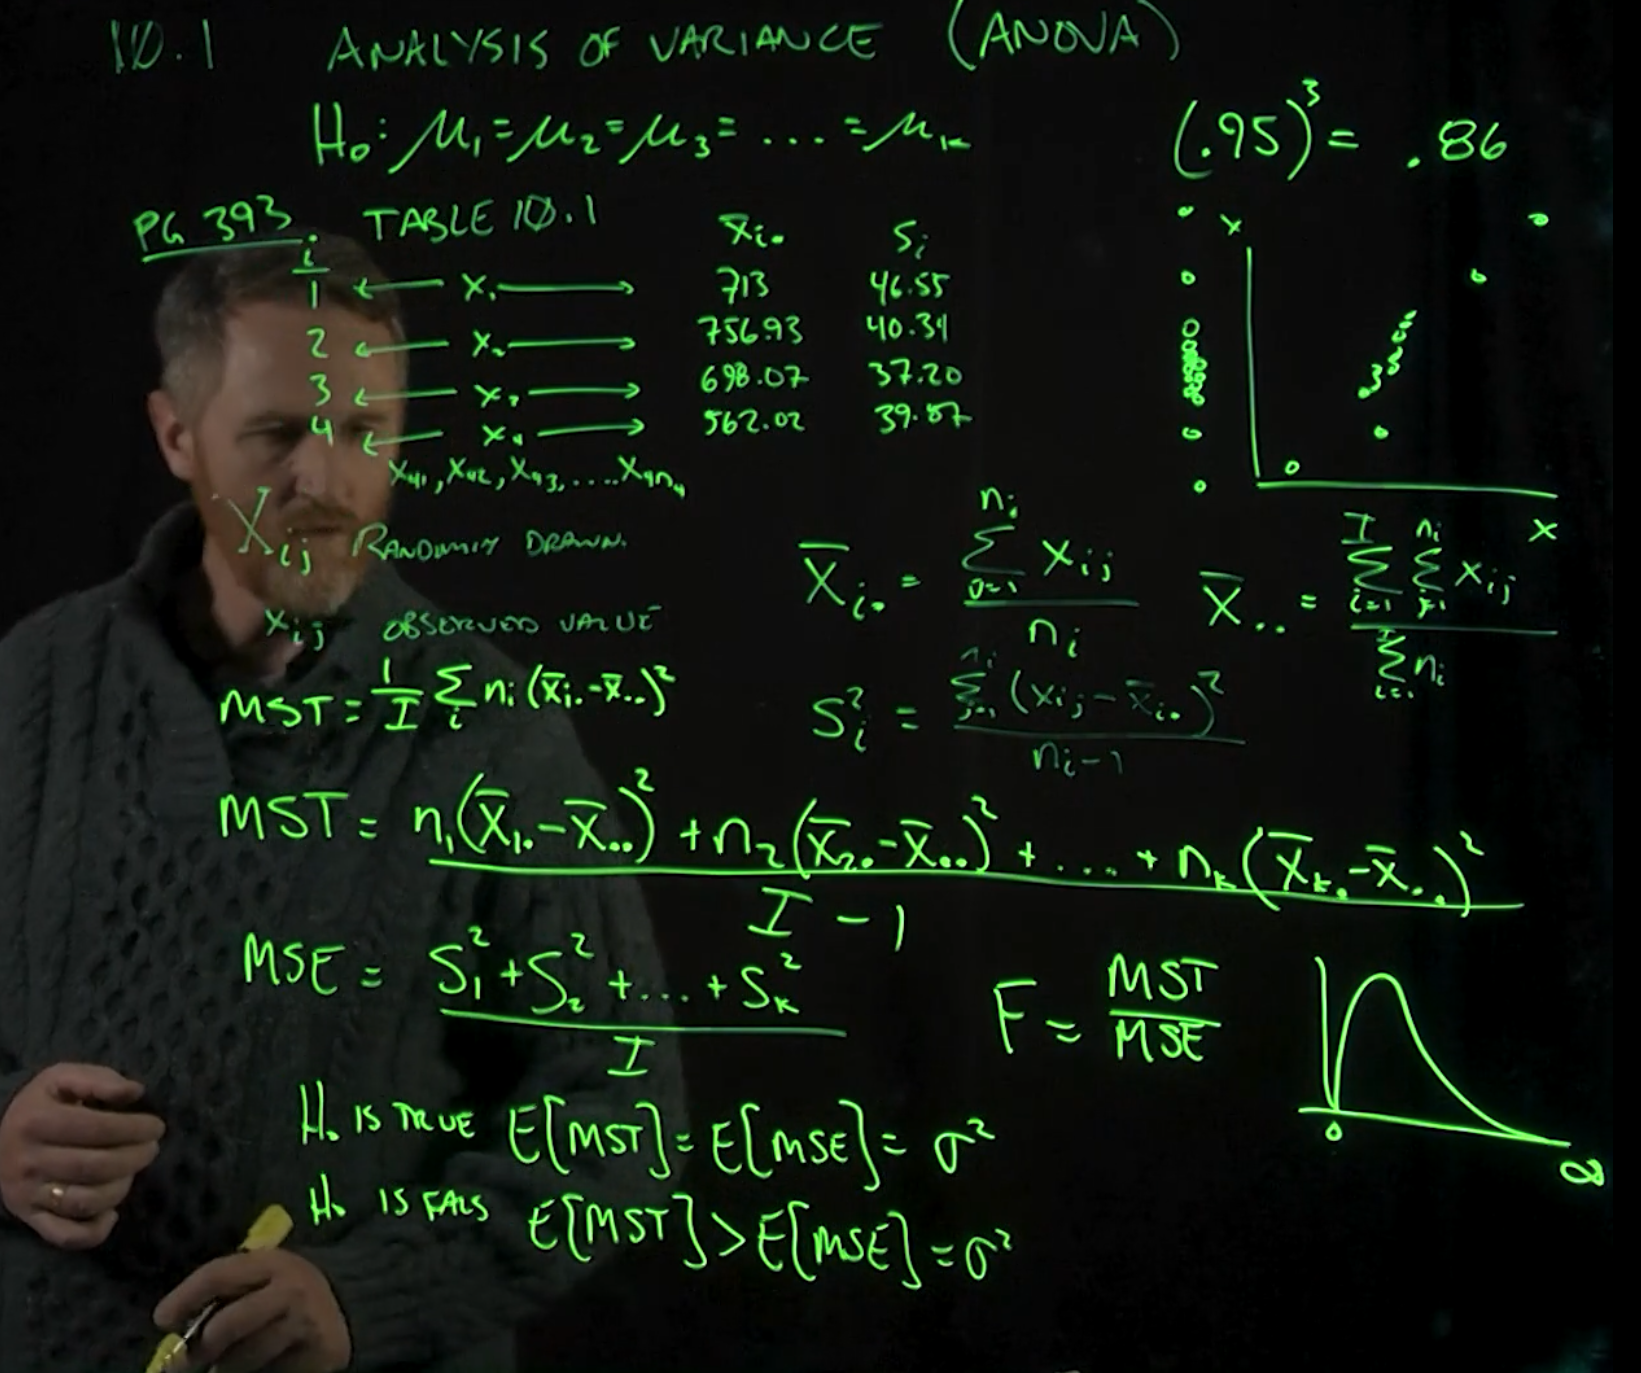 10.1 ANALYSIS OF VARIANCE (ANOVA)
H₀: μ₁ = μ₂ = μ₃ = .... = μₖ
(.95)³ = .86
PG 393 TABLE 10.1
i x̄ᵢ. Sᵢ
1 ← x₁ → 713 46.55
2 ← x₂ → 756.93 40.34
3 ← x₃ → 698.07 37.20
4 ← x₄ → 562.02 39.87
x₄₁, x₄₂, x₄₃, .... x₄ₙ₄
x
x
Xᵢⱼ RANDOMLY DRAWN.
xᵢⱼ OBSERVED VALUE
X̄ᵢ. = Σⱼ₌₁ⁿⁱ xᵢⱼ / nᵢ
X̄.. = Σᵢ₌₁ᴵ Σⱼ₌₁ⁿⁱ xᵢⱼ / Σᵢ₌₁ᴵ nᵢ
MST = 1/I Σᵢ nᵢ (x̄ᵢ. - x̄..)²
Sᵢ² = Σⱼ₌₁ⁿⁱ (xᵢⱼ - x̄ᵢ.)² / nᵢ-1
MST = n₁(X̄₁. - X̄..)² + n₂(X̄₂. - X̄..)² + .... + nₖ(X̄ₖ. - X̄..)² / I - 1
MSE = S₁² + S₂² + ... + Sₖ² / I
F = MST / MSE
0 ∞
H₀ IS TRUE E[MST] = E[MSE] = σ²
H₀ IS FALS E[MST] > E[MSE] = σ²